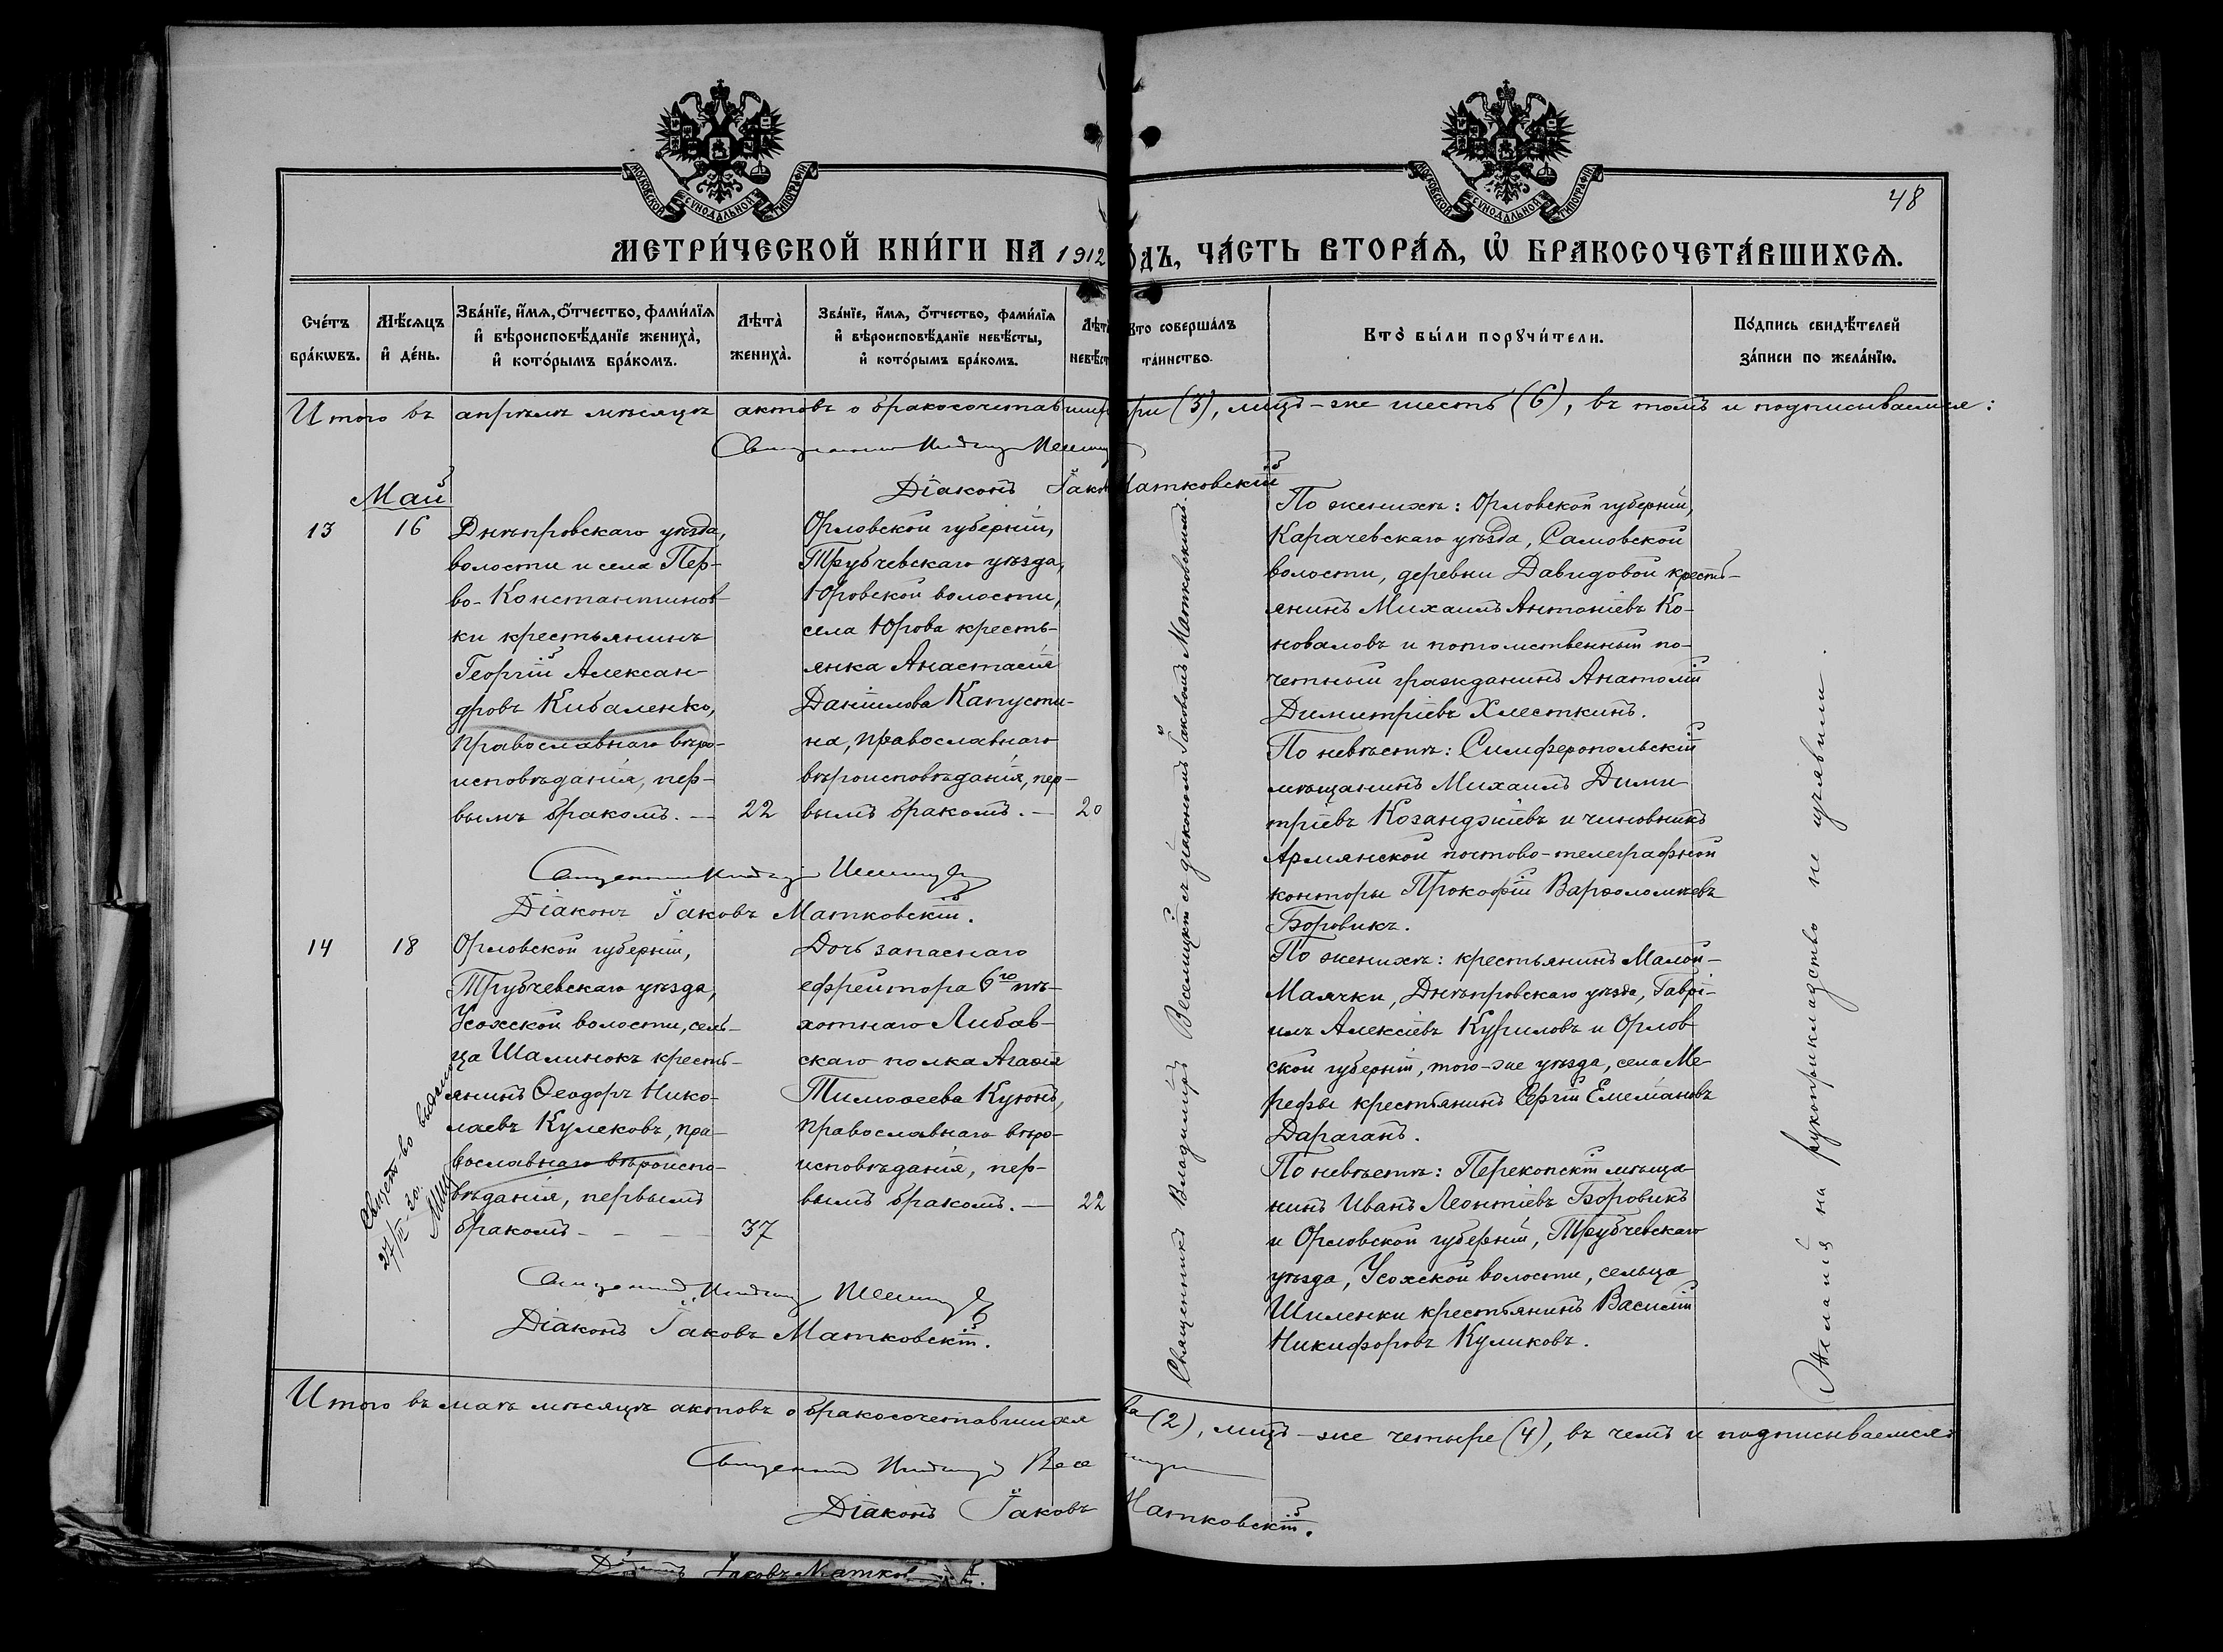 МОСКОВСКОЙ СѴНОДАЛЬНОЙ ТИПОГРАФІИ
МОСКОВСКОЙ СѴНОДАЛЬНОЙ ТИПОГРАФІИ
48
МЕТРИ́ЧЕСКОЙ КНИ́ГИ НА 1912
ОДЪ, ЧА́СТЬ ВТОРА́Ѧ, Ѡ҆ БРАКОСОЧЕТА́ВШИХСѦ.
Сче́тъ бра́кѡвъ.
Мѣ́сѧцъ и҆ де́нь.
Зва́нїе, и҆́мѧ, ѻ҆́тчество, фами́лїѧ и҆ вѣроисповѣ́данїе жениха̀, и҆ кото́рымъ бра́комъ.
Лѣта̀ жениха̀.
Зва́нїе, и҆́мѧ, ѻ҆́тчество, фами́лїѧ и҆ вѣроисповѣ́данїе невѣ́сты, и҆ кото́рымъ бра́комъ.
Лѣта̀ невѣст
Кто соверша́лъ та́инство.
Кто̀ бы́ли порꙋчи́тели.
По́дпись свидѣ́телей за́писи по жела́нїю.
Итого въ апрѣлѣ мѣсяцѣ актовъ о бракосочетавших
ри (3), лицъ-же шесть (6), въ томъ и подписываемся:
Діаконъ Іаков Матковскій
Май
13
16
Днѣпровскаго уѣзда,
волости и села Пер-
во-Константинов-
ки крестьянинъ
Георгій Алексан-
дровъ Кибаленко,
православнаго вѣро-
исповѣданія, пер-
вымъ бракомъ. —
22
Орловской губерніи,
Трубчевскаго уѣзда,
Юровской волости,
села Юрова кресть-
янка Анастасія
Даніилова Капусти-
на, православнаго
вѣроисповѣданія, пер-
вымъ бракомъ. —
20
По женихѣ: Орловской губерніи,
Карачевскаго уѣзда, Самовской
волости, деревни Давидовой кресть-
янинъ Михаилъ Антоніевъ Ко-
новаловъ и потомственный по-
четный гражданинъ Анатолій
Димитріевъ Хлесткинъ.
По невѣстѣ: Симферопольскій
мѣщанинъ Михаилъ Дими
тріевъ Козанджіевъ и чиновникъ
Армянской почтово-телеграфной
конторы Прокофій Варѳоломеевъ
Боровикъ.
Діаконъ Іаковъ Матковскій.
14
18
Орловской губерніи,
Трубчевскаго уѣзда,
Усохской волости, сель-
ца Шалинокъ кресть-
янинъ Ѳеодоръ Нико-
лаевъ Кулековъ, пра-
вославнаго вѣроиспо-
вѣданія, первымъ
бракомъ - - — —
37
Дочь запаснаго
ефрейтора 6го пѣ-
хотнаго Либав-
скаго полка Агаѳія
Тимоѳеева Куюнъ,
православнаго вѣро-
исповѣданія, пер-
вымъ бракомъ. —
22
По женихѣ: крестьянинъ Малой-
Маячки, Днѣпровскаго уѣзда, Гаврі-
илъ Алексіевъ Куриловъ и Орлов
ской губерніи, того-же уѣзда, села Ме-
рефы крестьянинъ Сергій Емеліановъ
Дараганъ.
По невѣстѣ: Перекопскій мѣща-
нинъ Иванъ Леонтіевъ Боровикъ
и Орловской губерніи, Трубчевскаго
уѣзда, Усохской волости, сельца
Шиленки крестьянинъ Василій
Никифоровъ Куликовъ.
Свидет-во выдано
27/II-30.
Діаконъ Іаковъ Матковскій.
Священникъ Владиміръ Веселицкій съ діакономъ Іаковомъ Матковскимъ.
Желанія на рукоприкладство не изъявили.
Итого въ маѣ мѣсяцѣ актовъ о бракосочетавшихся
ва (2), лицъ-же четыре (4), въ чемъ и подписываемся:
Діаконъ Іаковъ Матковскій.